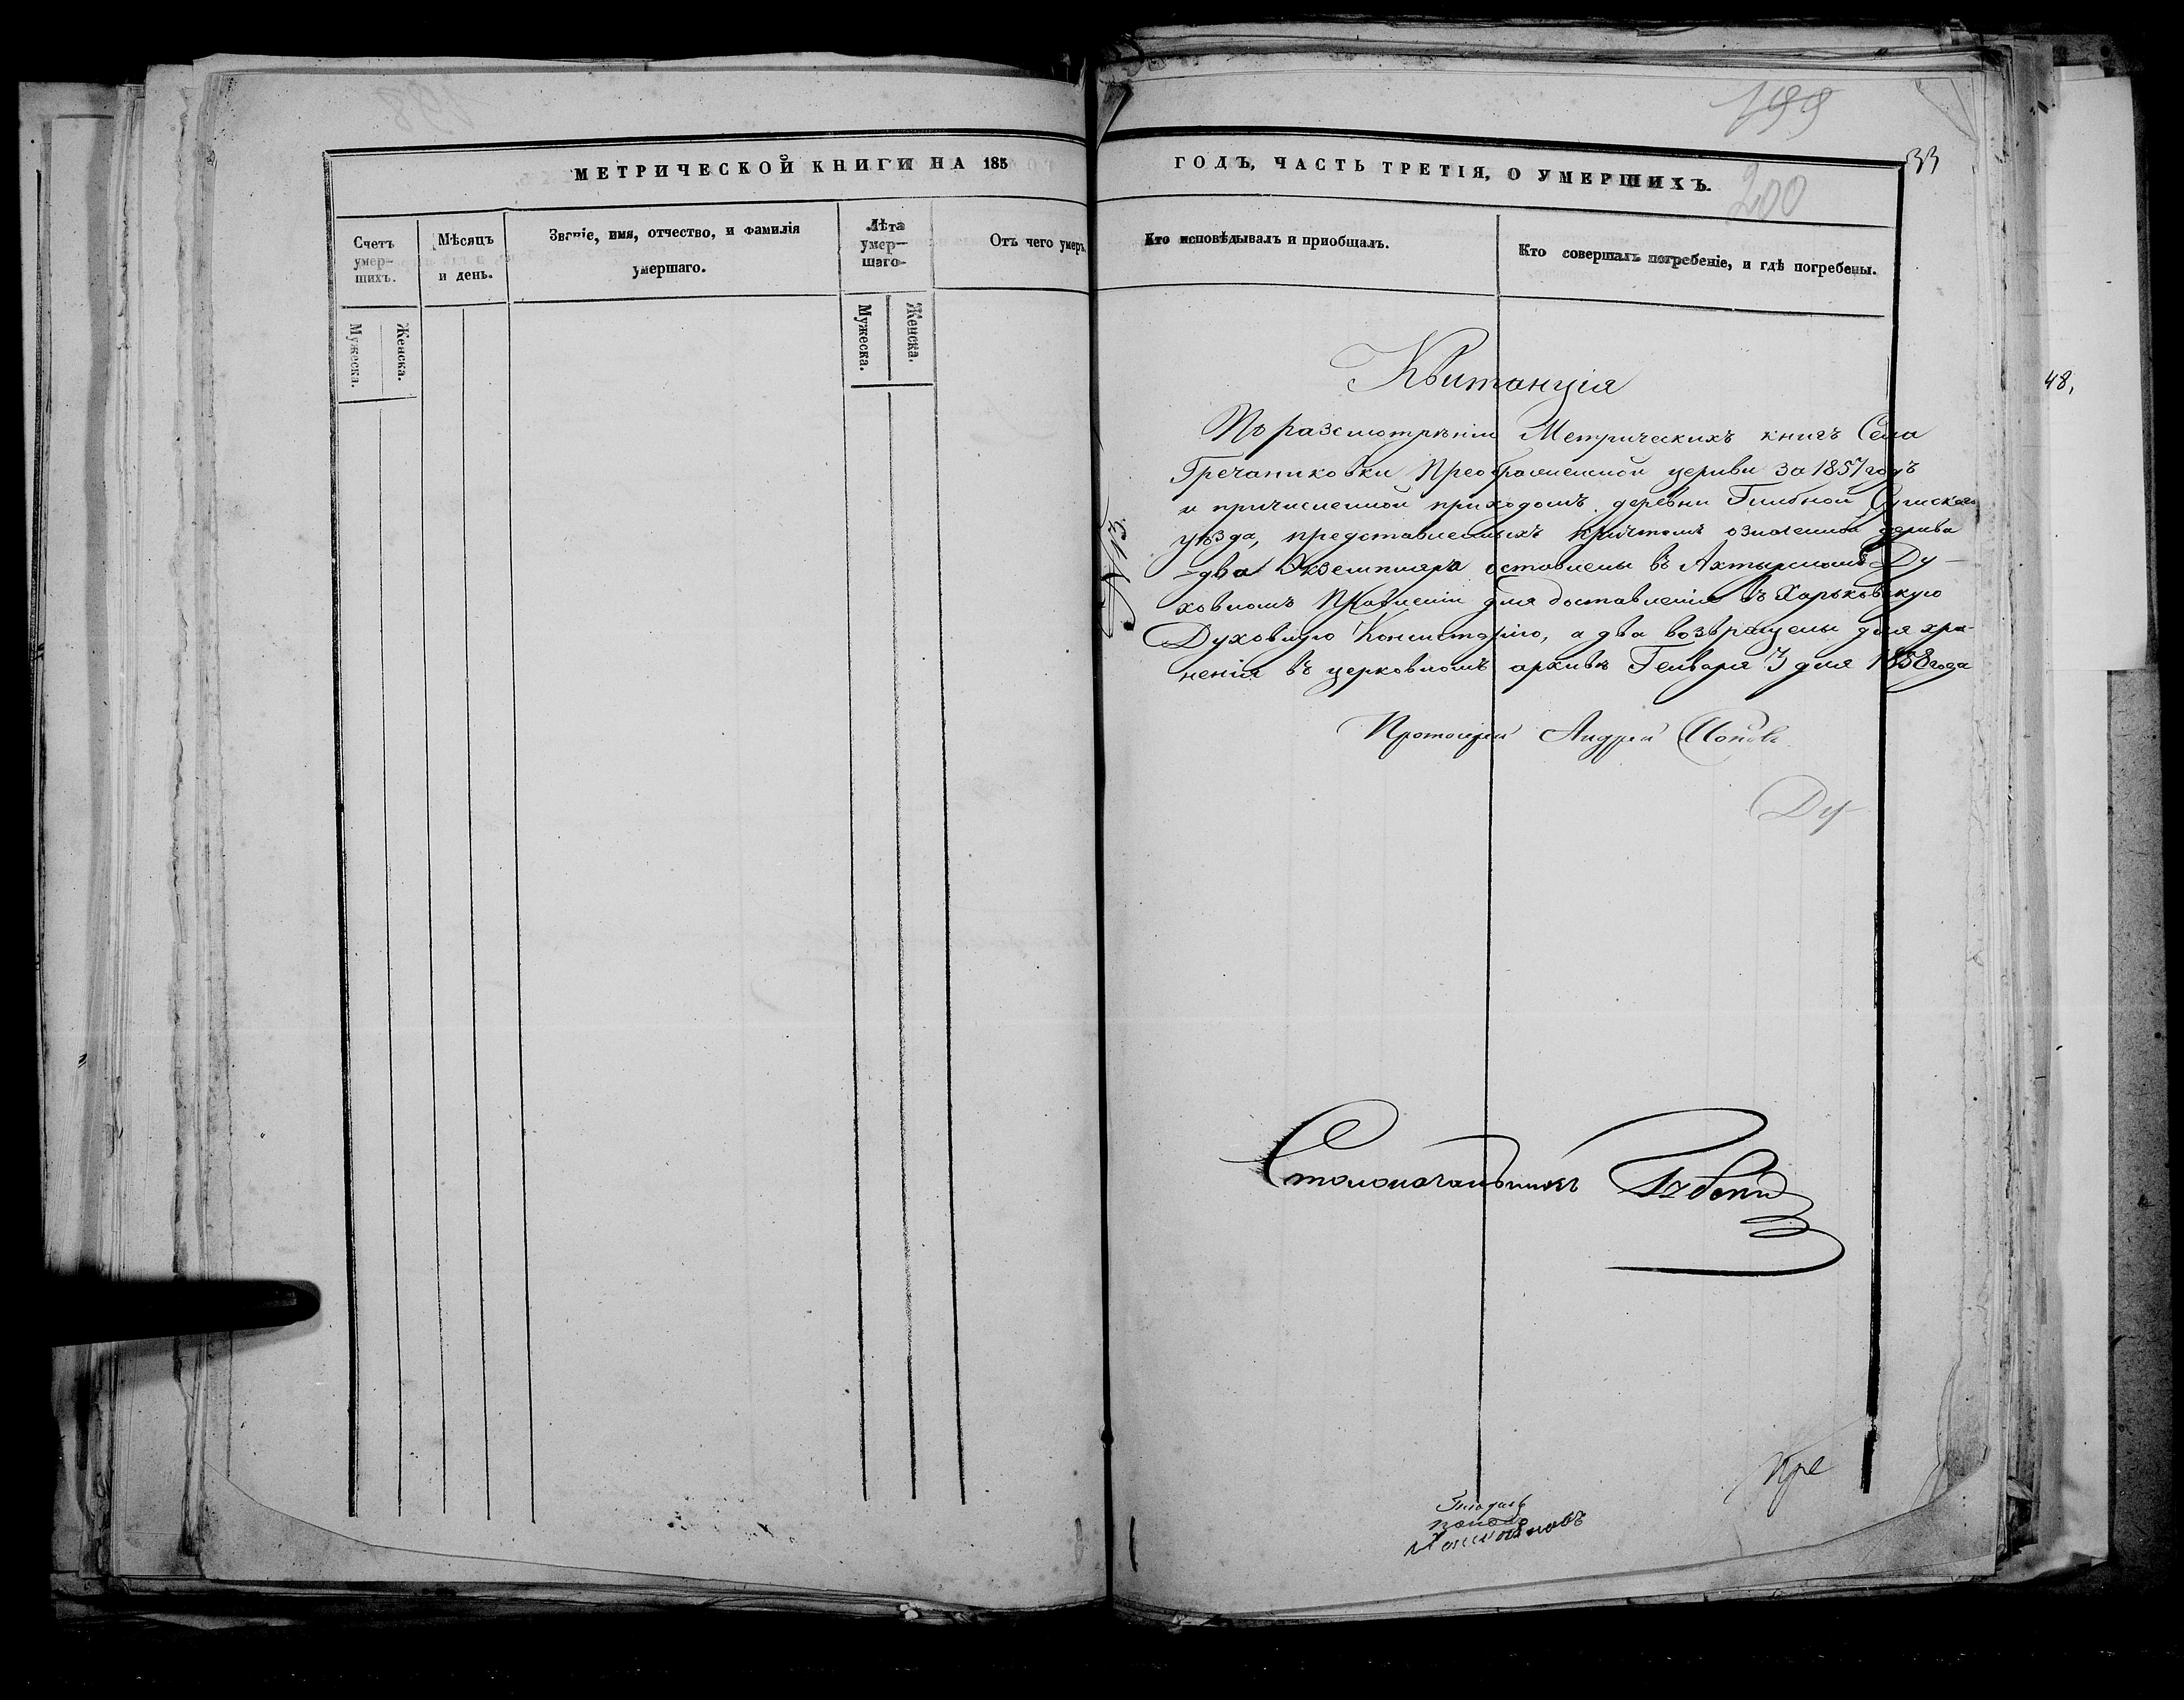 199
33
200
МЕТРИЧЕСКОЙ КНИГИ НА 185
ГОДЪ, ЧАСТЬ ТРЕТІЯ, О УМЕРШИХЪ.
Счетъ умер-шихъ.
Мѣсяцъ и день.
Званіе, имя, отчество, и фамилія
умершаго.
Лѣта умер-шаго
Отъ чего умеръ.
Кто исповѣдывалъ и пріобщалъ.
Кто совершалъ погребеніе, и гдѣ погребены.
Мужеска.
Женска.
Мужеска.
Женска.
48,
Квитанція
По разсмотрѣніи Метрическихъ книгъ Села
Гречаниковки Преображенской церкви за 1857 годъ
и причисленной приходомъ деревни Гнибной Сумскаго
уѣзда, представленныхъ причтомъ означенной церкви
два Экземпляра оставлены въ Ахтырскомъ Ду-
ховномъ Правленіи для доставленія въ Харьковскую
Духовную Консисторію, а два возвращены для хра-
ненія въ церковномъ архивѣ Генваря 3 дня 1858 года
Протоіерей Андрей Поповъ
Ду-
Столоначальникъ
пре